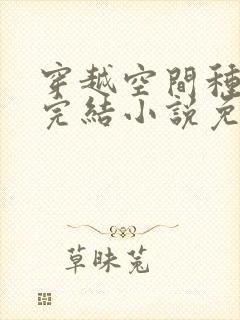 穿越空間種
完結小說免
草昧菟